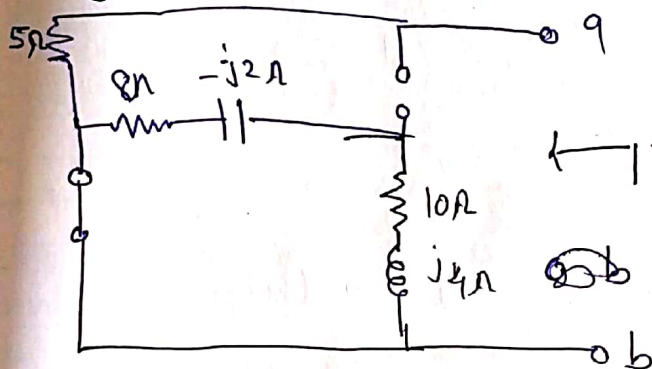 5Ω
a
8Ω
-j2Ω
10Ω
j4Ω
b